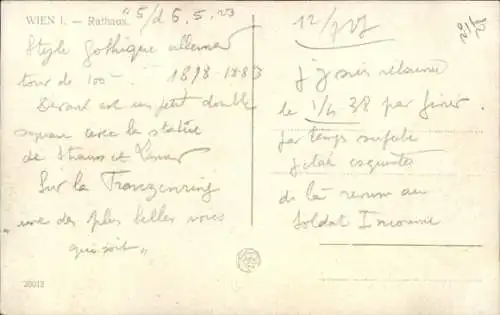 WIEN I. — Rathaus.
5/d 6.5.23
Style Gothique allemand
tour de 100
Devant est un petit double
square avec la statue
de Strauss et Lanner
Sur la Franzenring
"une des plus belles voies
qui soit"
26012
12/
J'y suis retourné
le 1/4 38 par
par temps superbe
de là revenu au
Soldat Inconnu